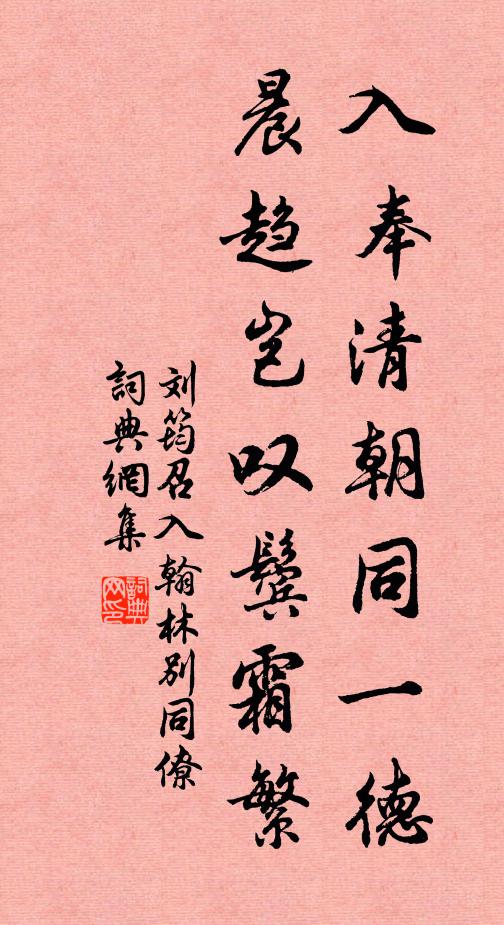 入奉清朝同一德
晨趋岂叹鬓霜繁
刘筠召入翰林别同僚
詞典網集
詞典网印